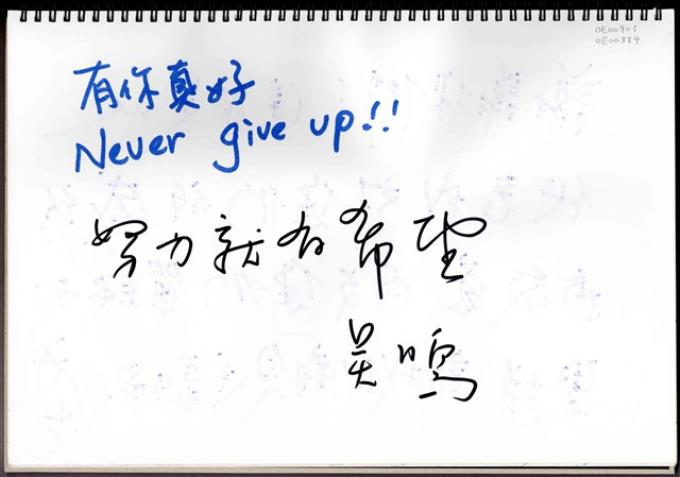 OE00905
OE00884
有你真好
Never give up!!
努力就有希望
吴鳴